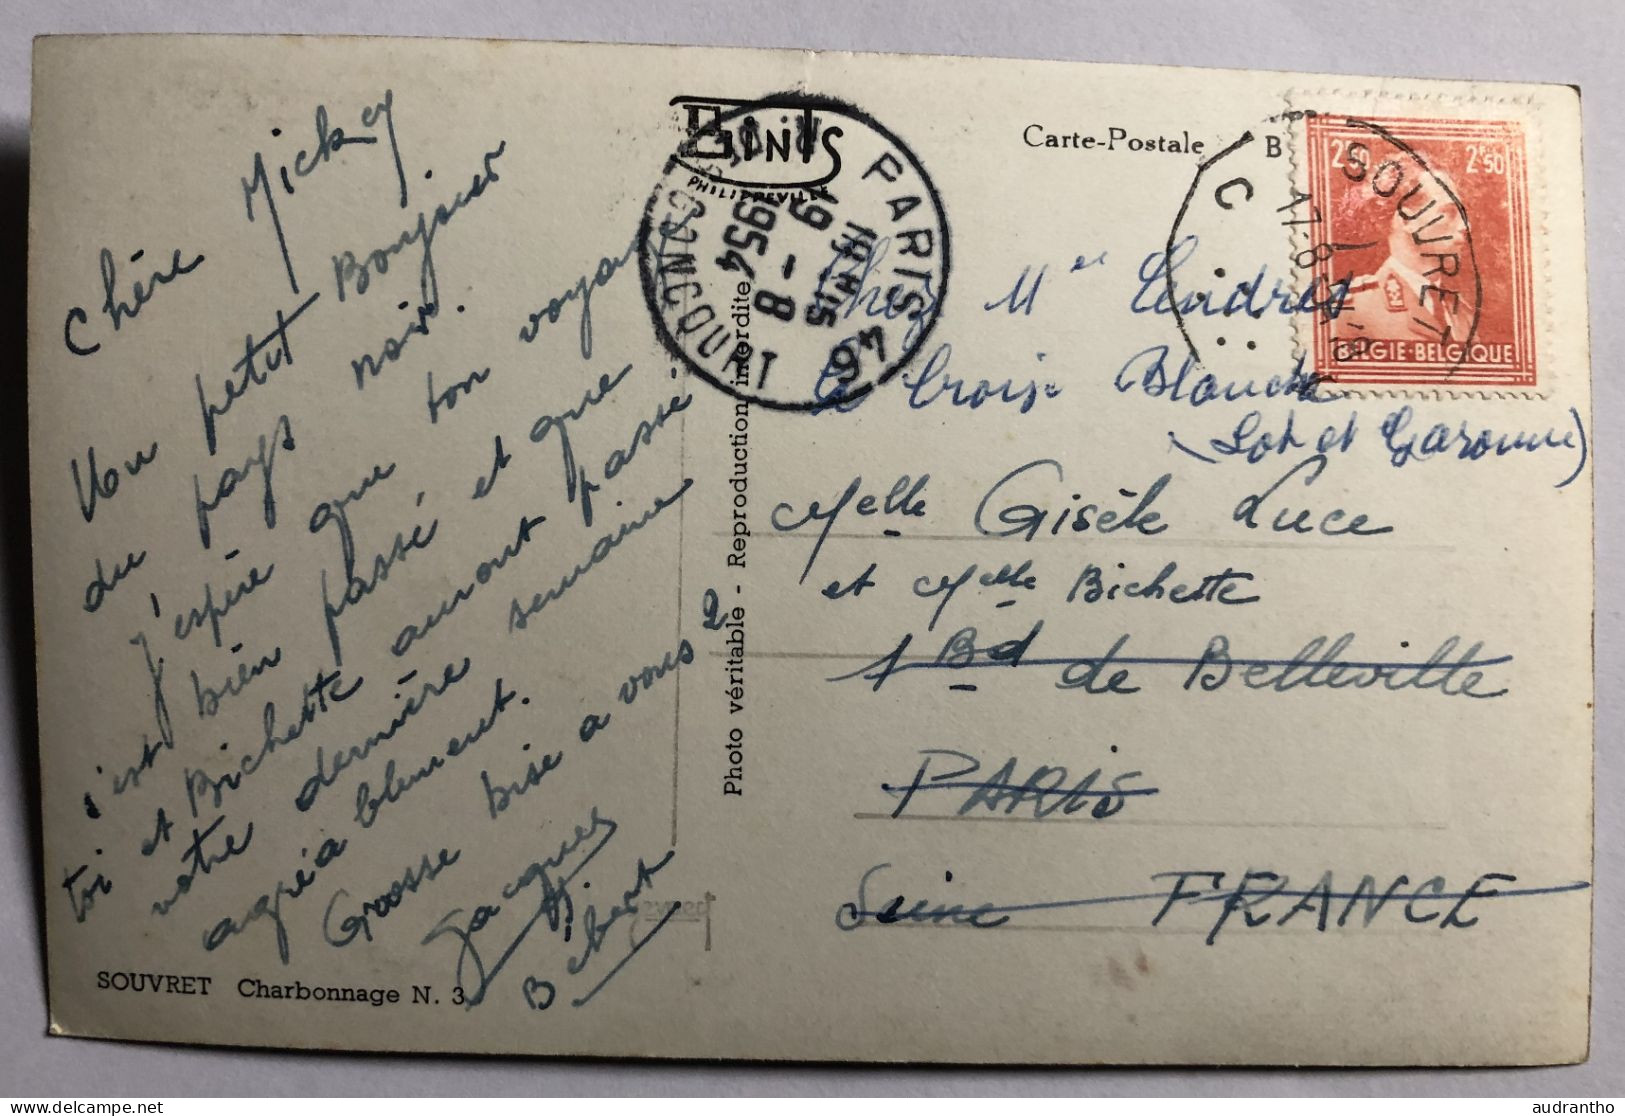 Chère Mickey
Un petit Bonjour
du pays noir.
J'espère que ton voyage
s'est bien passé et que
toi et Bichette auront passé
votre dernière semaine
agréablement.
Grosse bise a vous 2
Jacques
Bibert
SOUVRET Charbonnage N. 3
GINTS
PHILIPPEVILLE
PARIS 97
18H15
19 - 8
1954
Photo véritable - Reproduction interdite
Carte-Postale B
SOUVRET
17-8
C
2F50 2F50
BELGIE-BELGIQUE
Chez Mme
La Croix Blanche
(Lot et Garonne)
Melle Gisèle Luce
et Melle Bichette
1 Bd de Belleville
PARIS
Seine FRANCE
audrantho